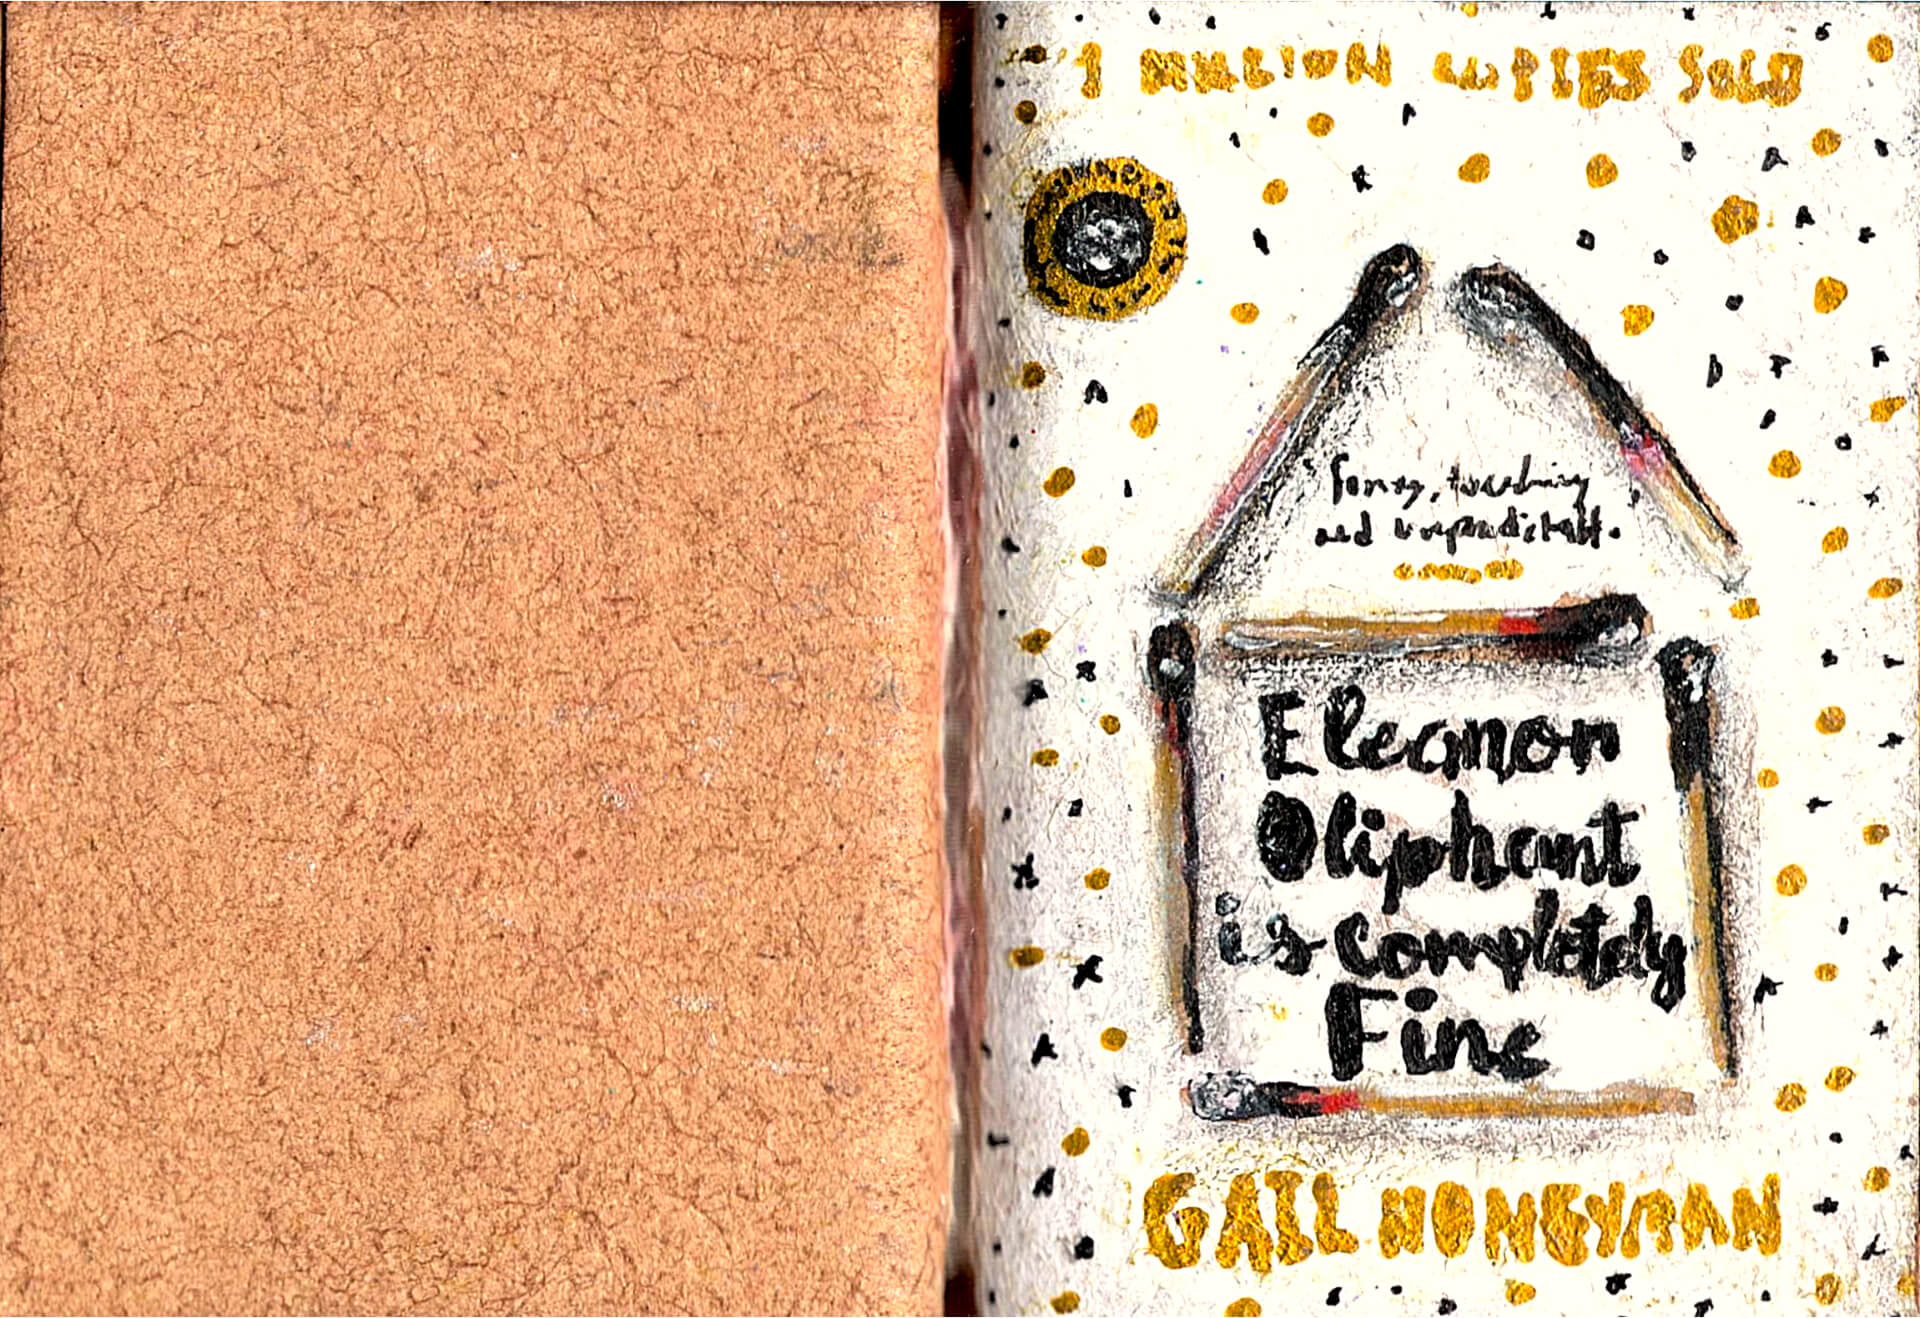 1 MILLION COPIES SOLD
Funny, touching
and unpredictable.
Eleanor
Oliphant
is completely
Fine
GAIL HONEYMAN